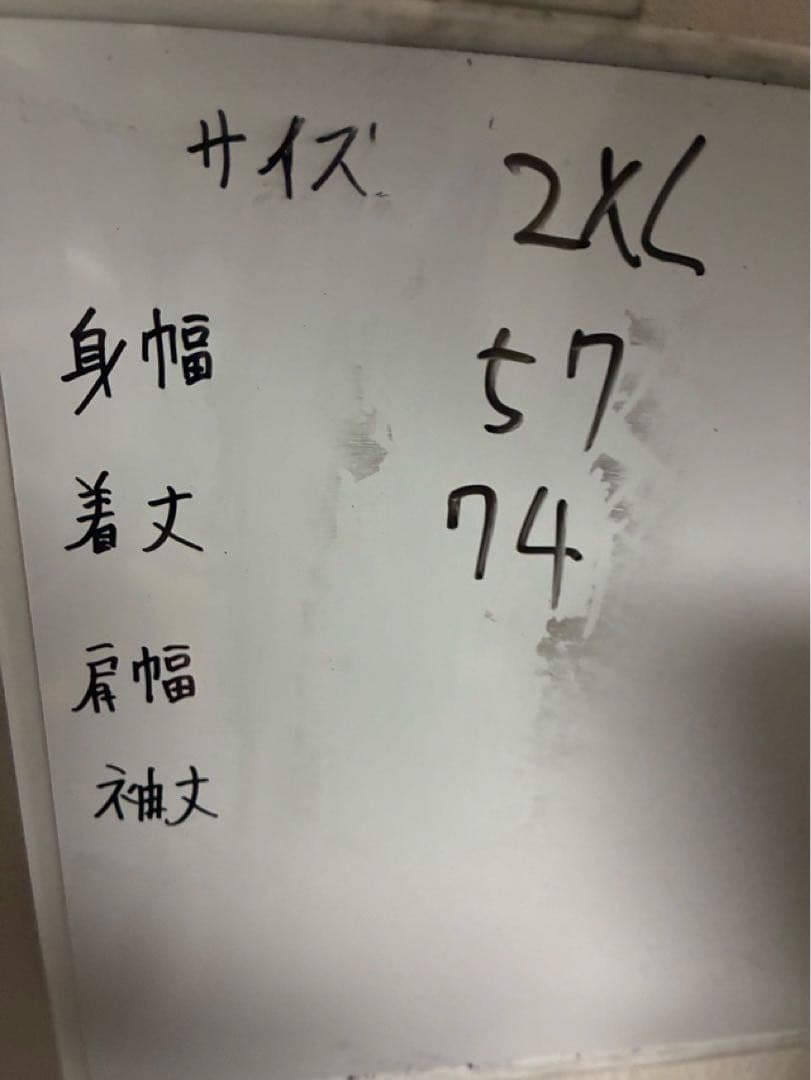 サイズ 2XL
身幅 57
着丈 74
肩幅
袖丈